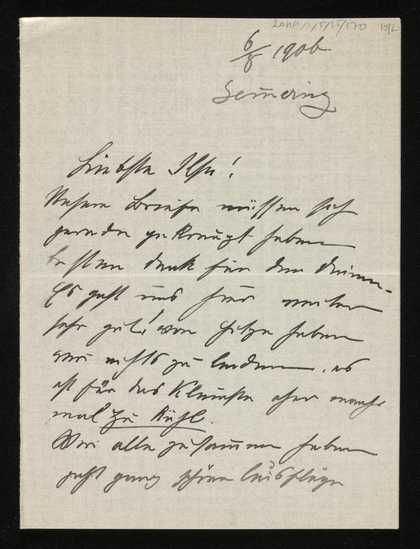 6/8 1906
Semmering
Liebste Ilse!
Unsere Briefe müssen sich
gerade gekreuzt haben
besten Dank für den Deinen.
Es geht uns hier weiter
sehr gut! von Hitze haben
wir nichts zu leiden, es
ist für das Kleinste eher manch
mal zu kühl.
Wir alle zusammen haben
jetzt ganz schöne Ausflüge